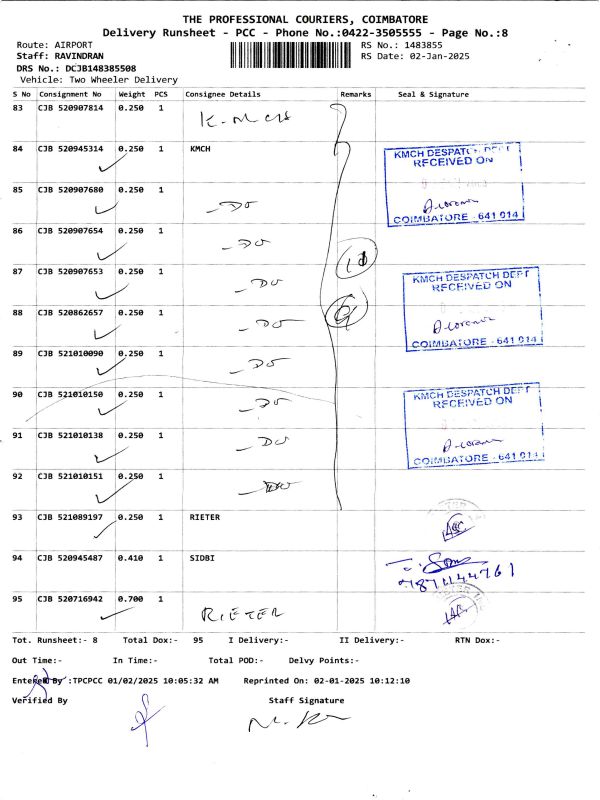 THE PROFESSIONAL COURIERS, COIMBATORE
Delivery Runsheet - PCC - Phone No.:0422-3505555 - Page No.:8
Route: AIRPORT RS No.: 1483855
Staff: RAVINDRAN RS Date: 02-Jan-2025
DRS No.: DCJB148385508
Vehicle: Two Wheeler Delivery
S No Consignment No Weight PCS Consignee Details Remarks Seal & Signature
83 CJB 520907814 0.250 1
84 CJB 520945314 0.250 1 KMCH
KMCH DESPATCH DEPT
RECEIVED ON
COIMBATORE - 641 014
85 CJB 520907680 0.250 1 - Do
86 CJB 520907654 0.250 1 - Do
87 CJB 520907653 0.250 1 - Do
KMCH DESPATCH DEPT
RECEIVED ON
COIMBATORE - 641 014
88 CJB 520862657 0.250 1 - Do
89 CJB 521010090 0.250 1 - Do
90 CJB 521010150 0.250 1 - Do
KMCH DESPATCH DEPT
RECEIVED ON
COIMBATORE - 641 014
91 CJB 521010138 0.250 1 - Do
92 CJB 521010151 0.250 1 - Do
93 CJB 521089197 0.250 1 RIETER
94 CJB 520945487 0.410 1 SIDBI
95 CJB 520716942 0.700 1 RIETER
Tot. Runsheet:- 8 Total Dox:- 95 I Delivery:- II Delivery:- RTN Dox:-
Out Time:- In Time:- Total POD:- Delvy Points:-
Entered By :TPCPCC 01/02/2025 10:05:32 AM Reprinted On: 02-01-2025 10:12:10
Verified By Staff Signature